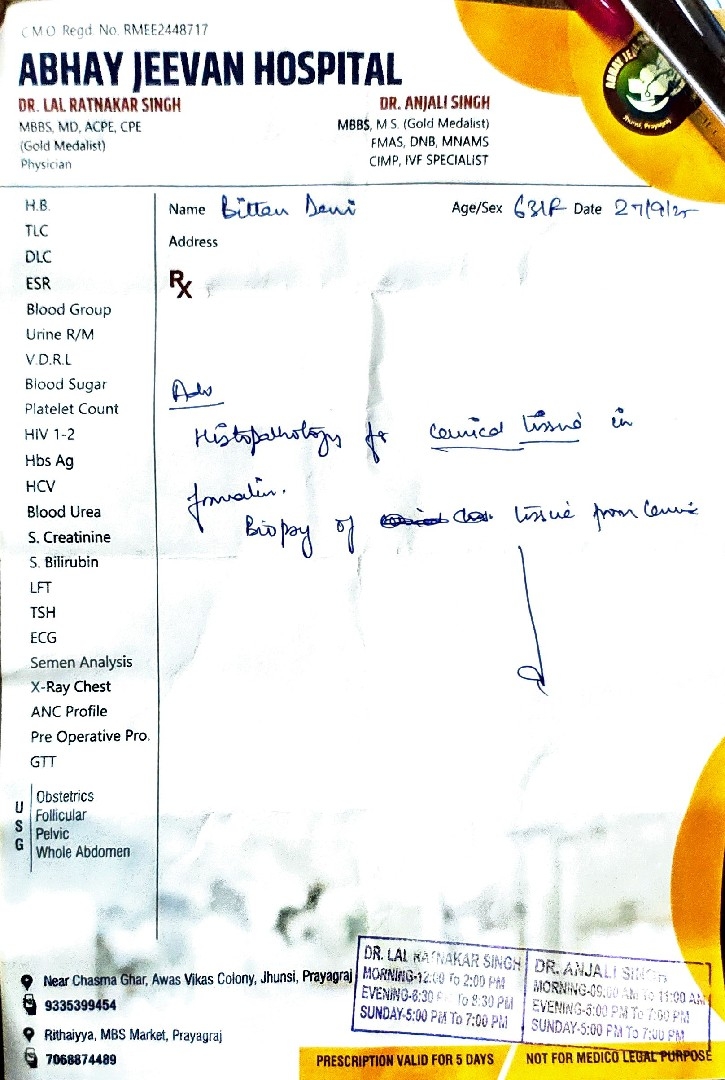 C M O Regd. No. RMEE2448717
ABHAY JEEVAN HOSPITAL
DR. LAL RATNAKAR SINGH
MBBS, MD, ACPE, CPE
(Gold Medalist)
Physician
DR. ANJALI SINGH
MBBS, M S. (Gold Medalist)
FMAS, DNB, MNAMS
CIMP, IVF SPECIALIST
Jhunsi, Prayagraj
H.B.
TLC
DLC
ESR
Blood Group
Urine R/M
V.D.R.L
Blood Sugar
Platelet Count
HIV 1-2
Hbs Ag
HCV
Blood Urea
S. Creatinine
S. Bilirubin
LFT
TSH
ECG
Semen Analysis
X-Ray Chest
ANC Profile
Pre Operative Pro.
GTT
USG
Obstetrics
Follicular
Pelvic
Whole Abdomen
Name Bittan Devi Age/Sex 63/F Date 27/9/25
Address
Rx
Adv
Histopathology for cervical tissue in
formalin.
Biopsy of tissue from cervix
Near Chasma Ghar, Awas Vikas Colony, Jhunsi, Prayagraj
9335399454
Rithaiyya, MBS Market, Prayagraj
7068874489
DR. LAL RATNAKAR SINGH
MORNING-12:00 To 2:00 PM
EVENING-6:30 PM To 8:30 PM
SUNDAY-5:00 PM To 7:00 PM
DR. ANJALI SINGH
MORNING-09:00 AM To 11:00 AM
EVENING-5:00 PM To 7:00 PM
SUNDAY-5:00 PM To 7:00 PM
PRESCRIPTION VALID FOR 5 DAYS
NOT FOR MEDICO LEGAL PURPOSE